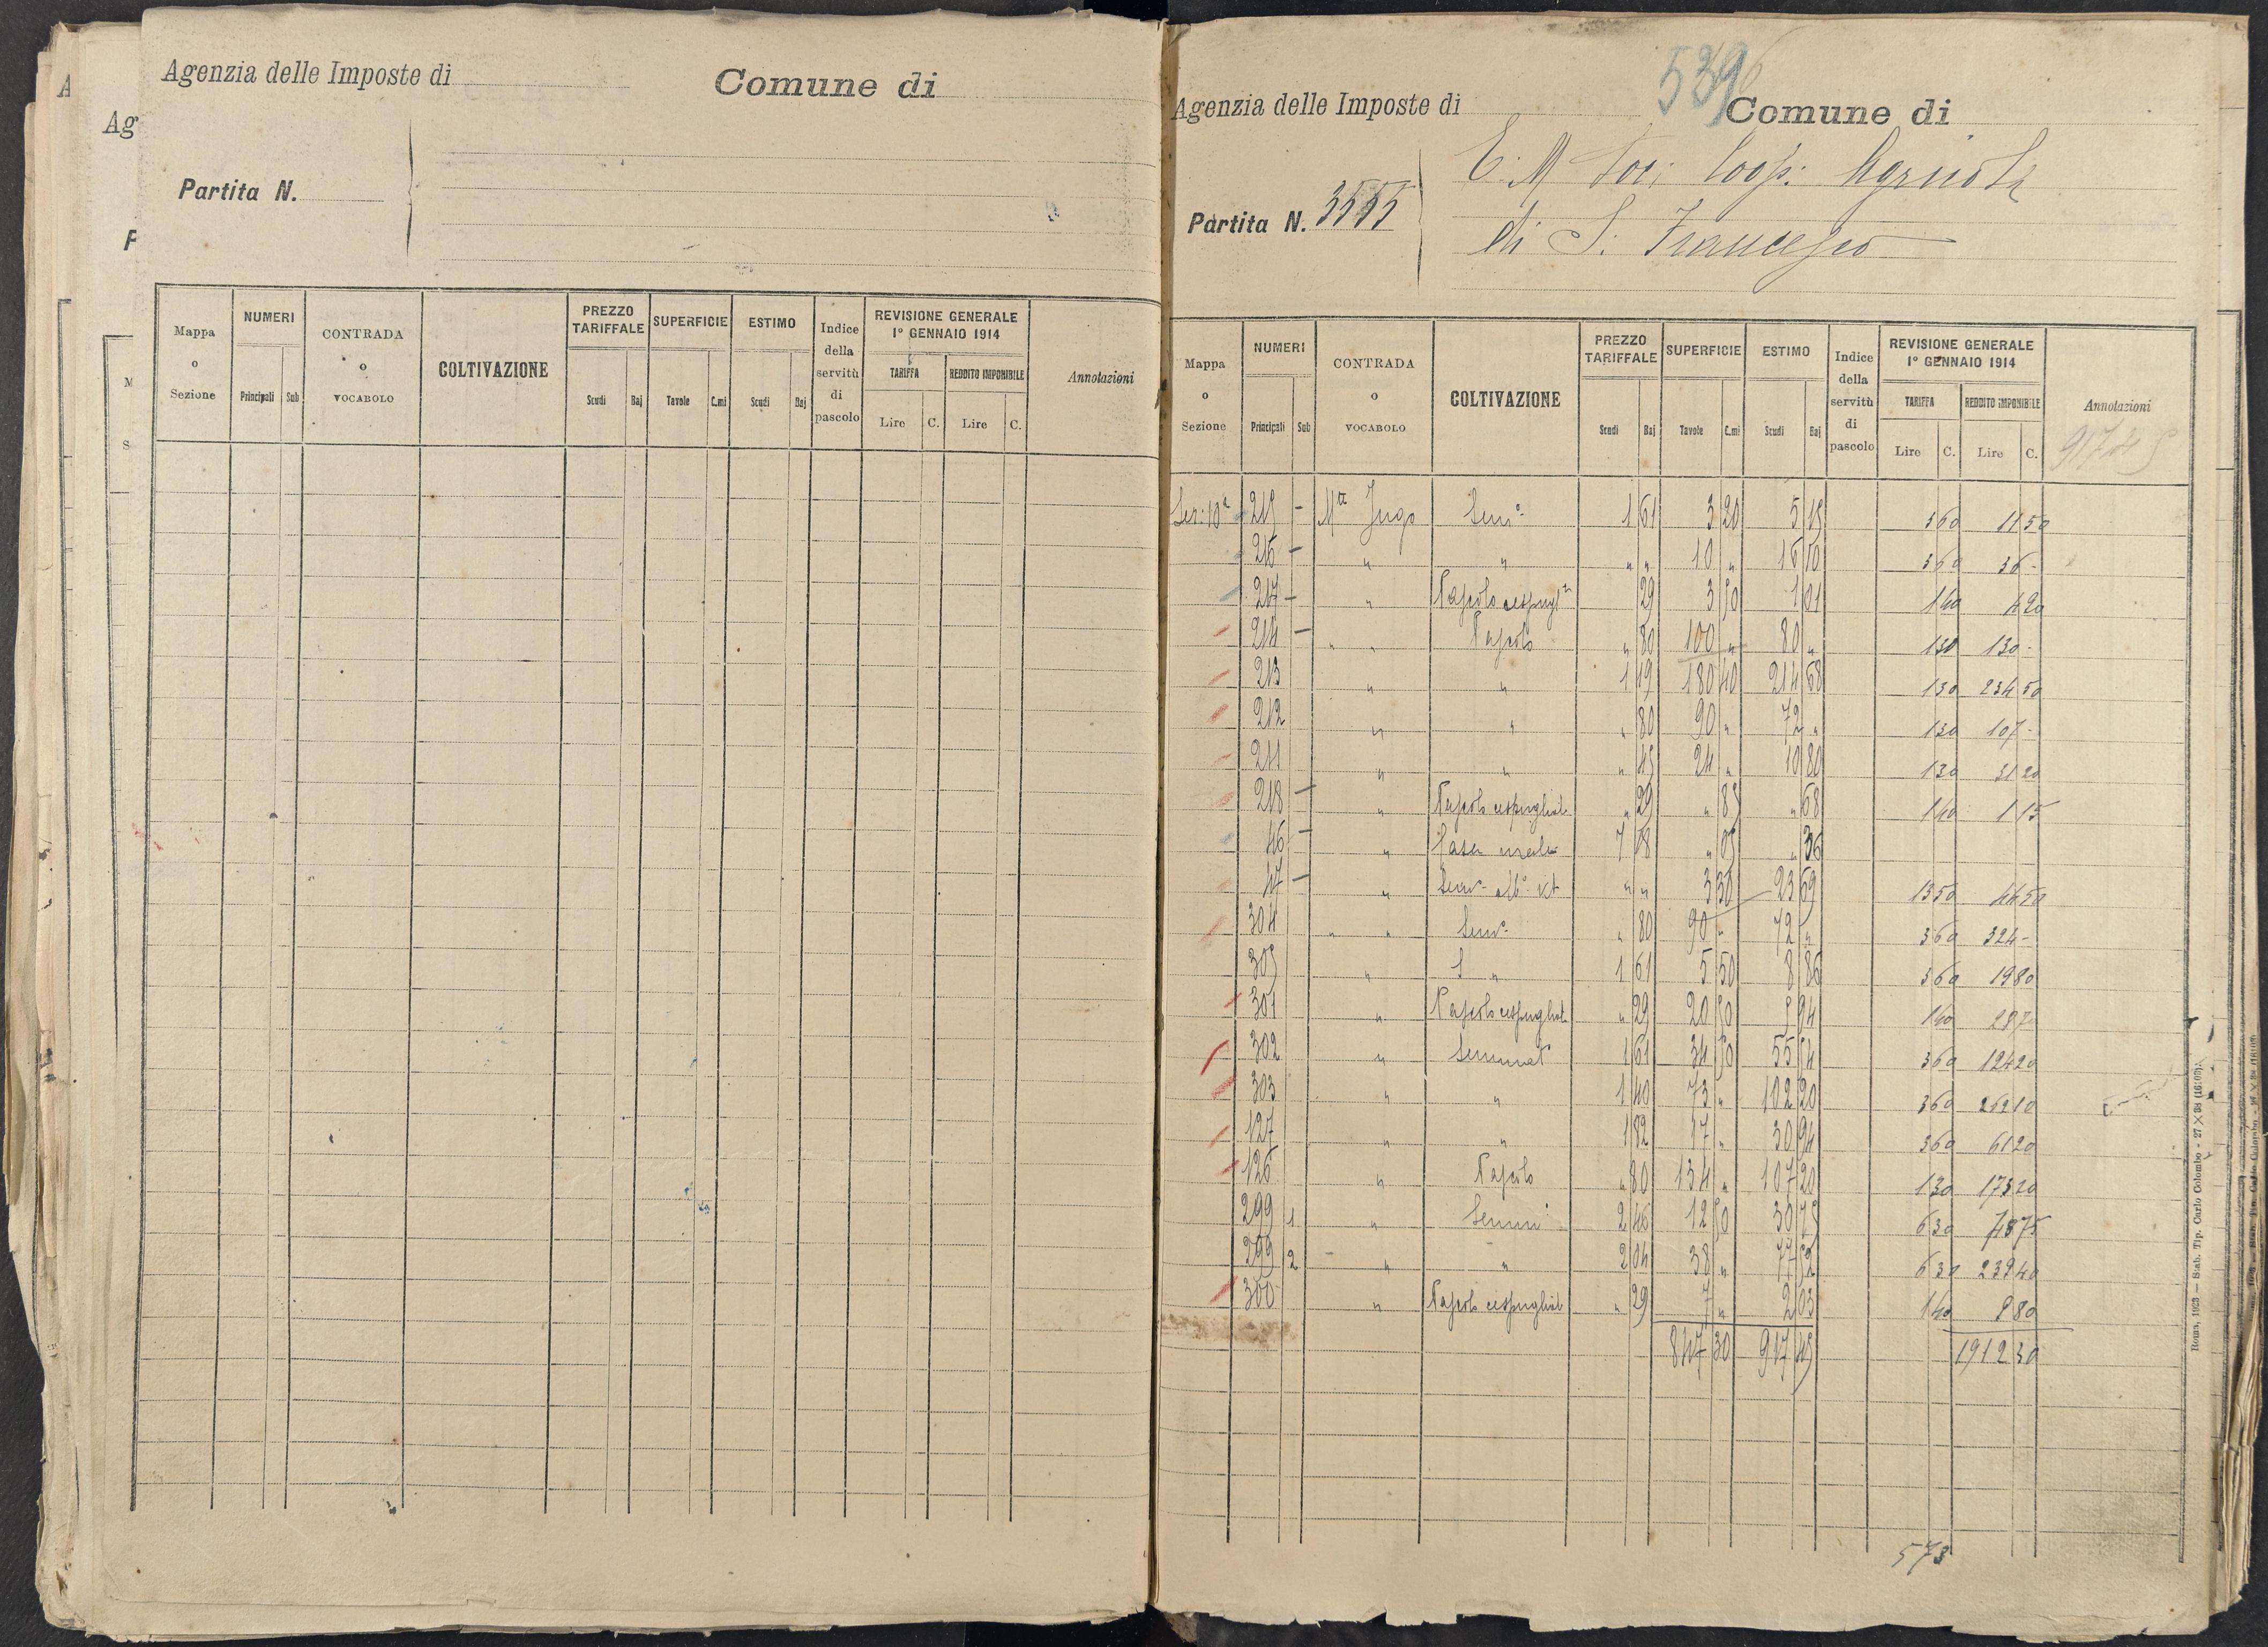 Agenzia delle Imposte di
Comune di
Partita N.
Mappa o Sezione
NUMERI
Principali
Sub
CONTRADA o VOCABOLO
COLTIVAZIONE
PREZZO TARIFFALE
Scudi
Baj
SUPERFICIE
Tavole
C.mi
ESTIMO
Scudi
Baj
Indice della servitù di pascolo
REVISIONE GENERALE 1° GENNAIO 1914
TARIFFA
Lire
C.
REDDITO IMPONIBILE
Lire
C.
Annotazioni
5396
Agenzia delle Imposte di
Comune di
Partita N. 3555
E. M Soc; Coop: Agricola
di S. Francesco
Mappa o Sezione
NUMERI
Principali
Sub
CONTRADA o VOCABOLO
COLTIVAZIONE
PREZZO TARIFFALE
Scudi
Baj
SUPERFICIE
Tavole
C.mi
ESTIMO
Scudi
Baj
Indice della servitù di pascolo
REVISIONE GENERALE 1° GENNAIO 1914
TARIFFA
Lire
C.
REDDITO IMPONIBILE
Lire
C.
Annotazioni
917 45
Sez: 10ª 215 – Mte Jugo Semo 1 61 3 20 5 15 3 60 11 50
216 – " " " " 10 " 16 10 3 60 36 -
217 – " Pascolo cespugl 29 3 50 1 01 1 40 4 20
214 – " " Pascolo " 80 100 " 80 " 1 30 130 -
213 " " 1 19 180 40 214 68 1 30 234 50
212 " " " 80 90 " 72 " 1 30 107 -
211 " " " 45 24 " 10 80 1 30 31 20
218 – " Pascolo cespugliat " 29 " 85 " 68 1 40 1 15
46 – " Casa rurale 7 18 " 05 " 36
47 – " Semo albo vit " " 3 30 23 69 13 50 44 50
304 " " Semo " 80 90 " 72 " 3 60 324 -
305 " S " 1 61 5 50 8 86 3 60 19 80
301 " Pascolo cespugliat " 29 20 50 5 94 1 40 28 70
302 " Seminat 1 61 34 50 55 54 3 60 124 20
303 " " 1 40 73 " 102 20 3 60 262 10
127 " " 1 82 17 " 30 94 3 60 61 20
126 " Pascolo " 80 134 " 107 20 1 30 173 20
299 1 " Semin 2 46 12 50 30 75 6 30 78 75
299 2 " " 2 04 38 " 77 52 6 30 239 40
300 " Pascolo cespugliat " 29 7 " 2 03 1 40 9 80
847 30 917 45 1912 30
573
Roma, 1923 — Stab. Tip. Carlo Colombo - 27 X 38 (16:00).